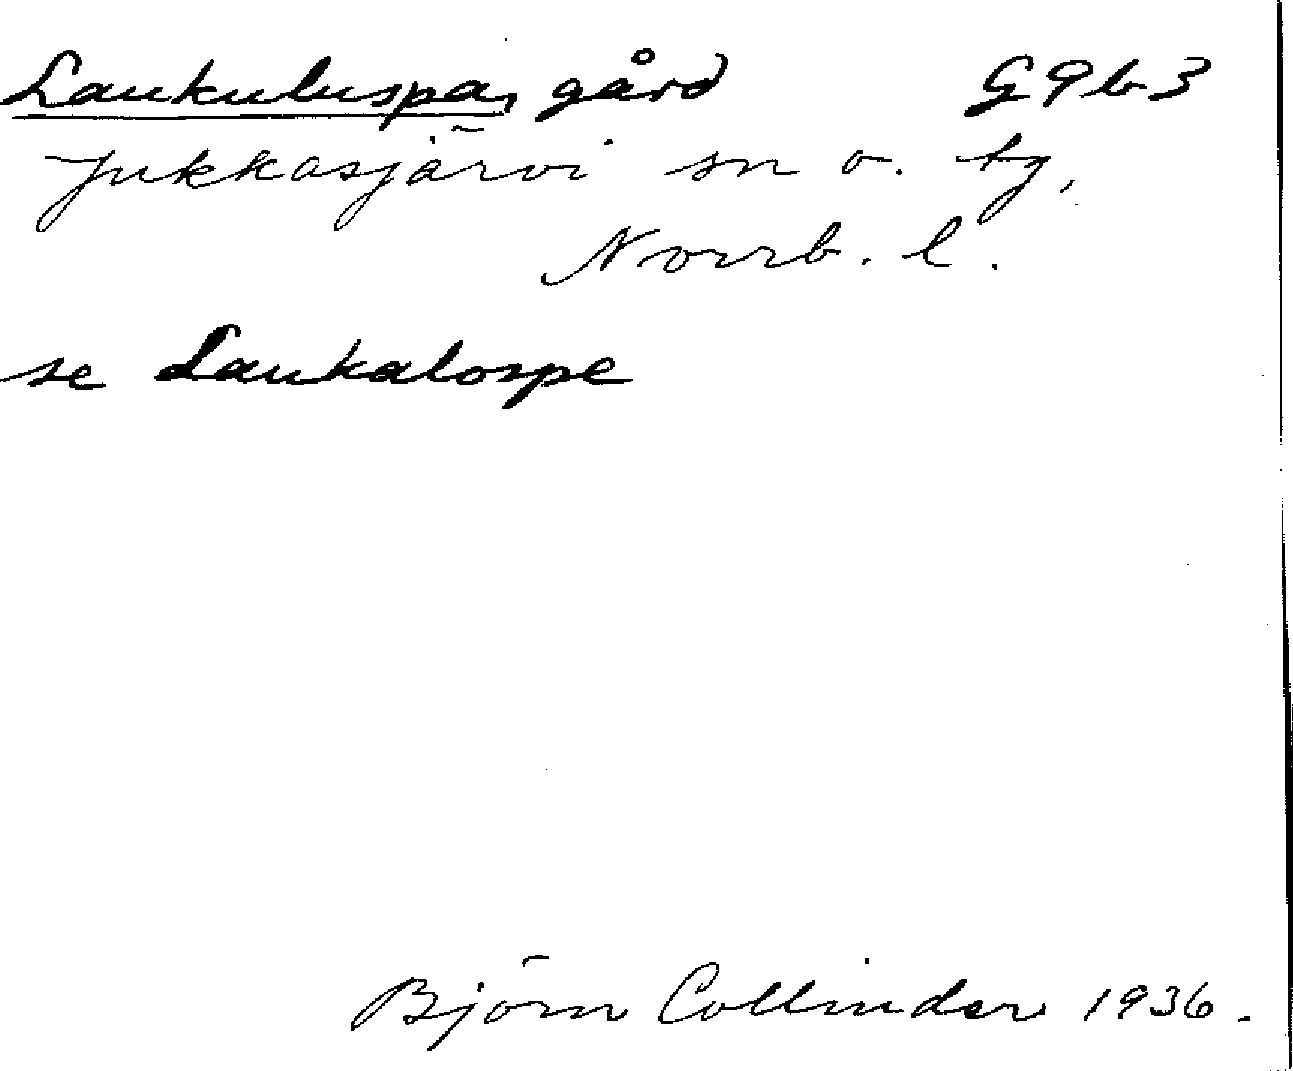 Laukuluspa, gård G9b3
Jukkasjärvi sn o. tg,
Norrb. l.
se Laukalospe
Björn Collinder 1936.